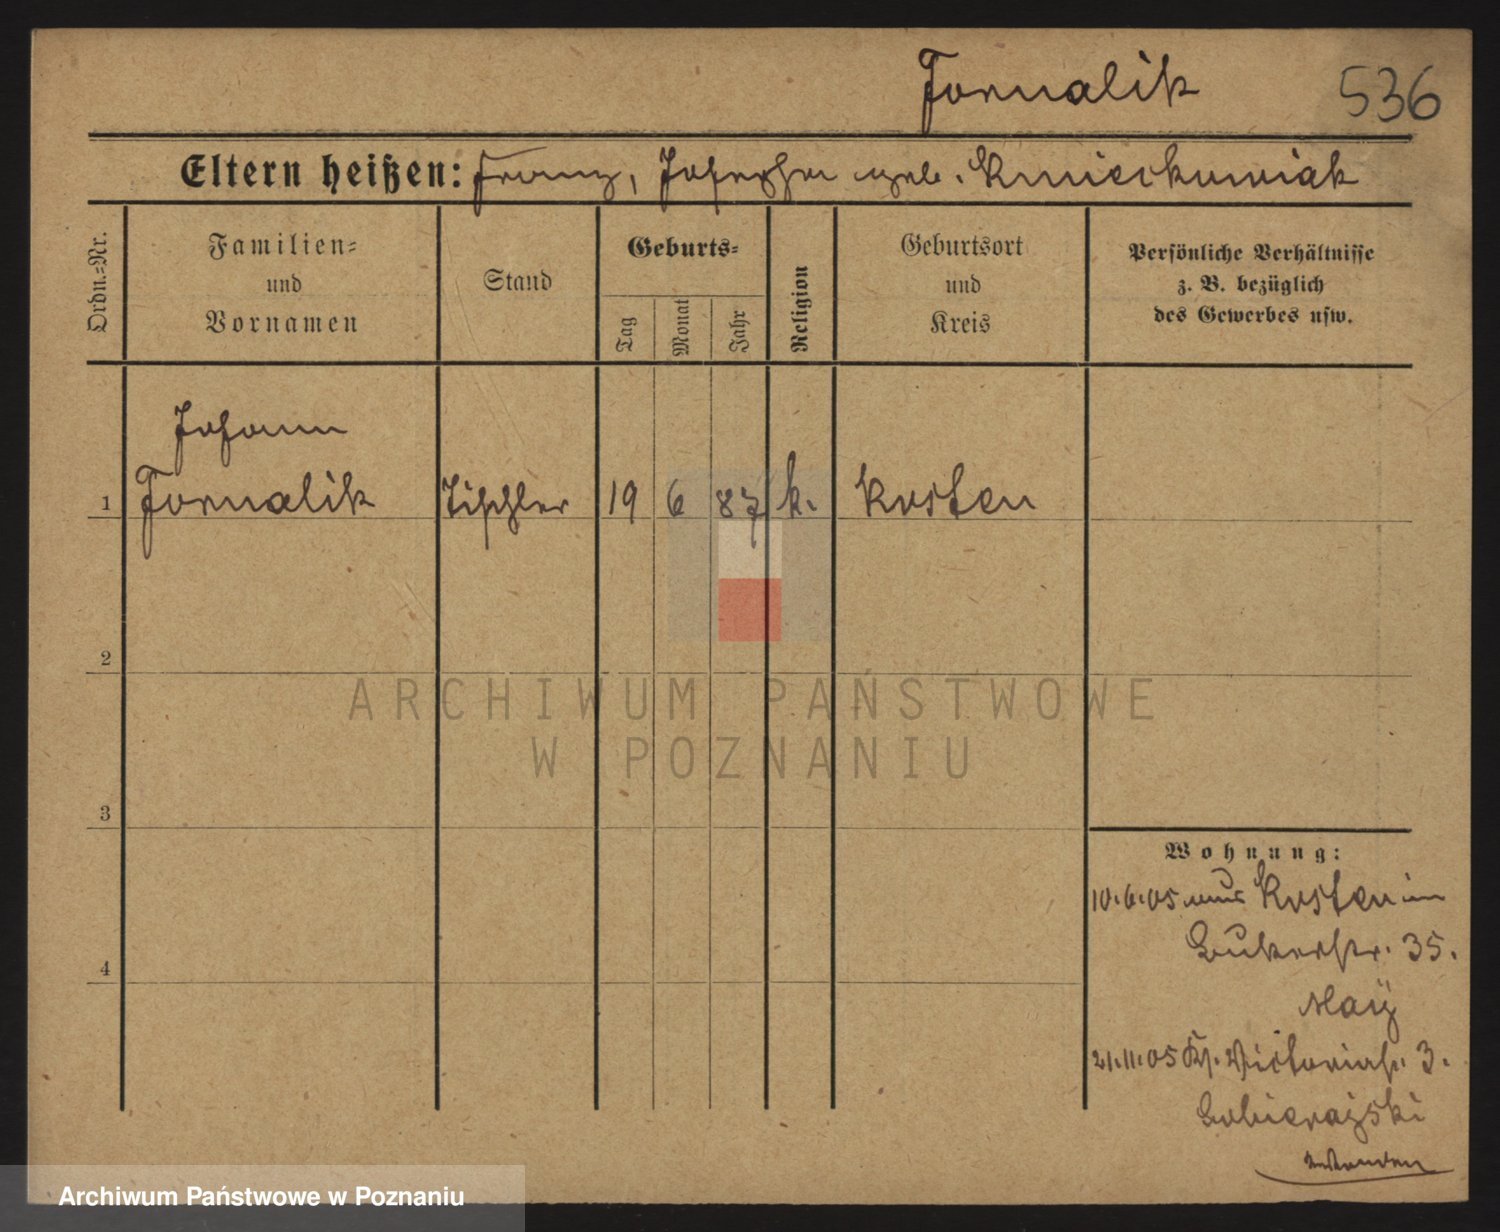 Fornalik 536
Eltern heißen: Franz, Josepha geb. Kmieckowiak
Ordn.=Nr.
Familien=
und
Vornamen
Stand
Geburts=
Tag
Monat
Jahr
Religion
Geburtsort
und
Kreis
Persönliche Verhältnisse
z. B. bezüglich
des Gewerbes usw.
Johann
1 Fornalik Tischler 19 6 87 k. Kosten
2
ARCHIWUM PAŃSTWOWE
W POZNANIU
3
Wohnung:
10.6.05 aus Kosten in
35.
4
21.11.05 Victoriastr. 3.
Archiwum Państwowe w Poznaniu